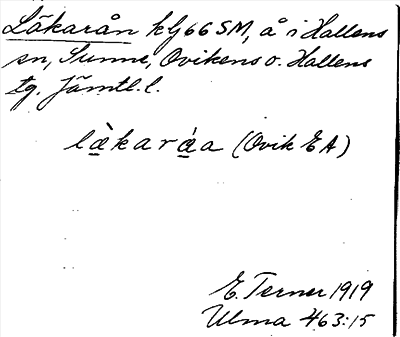 Läkarån klj 66 SM, å i Hallens
sn, Sunne, Ovikens o. Hallens
tg. Jämtl. l.
là̱kará̱a (Ovik EA)
E. Terner 1919
Ulma 463:15